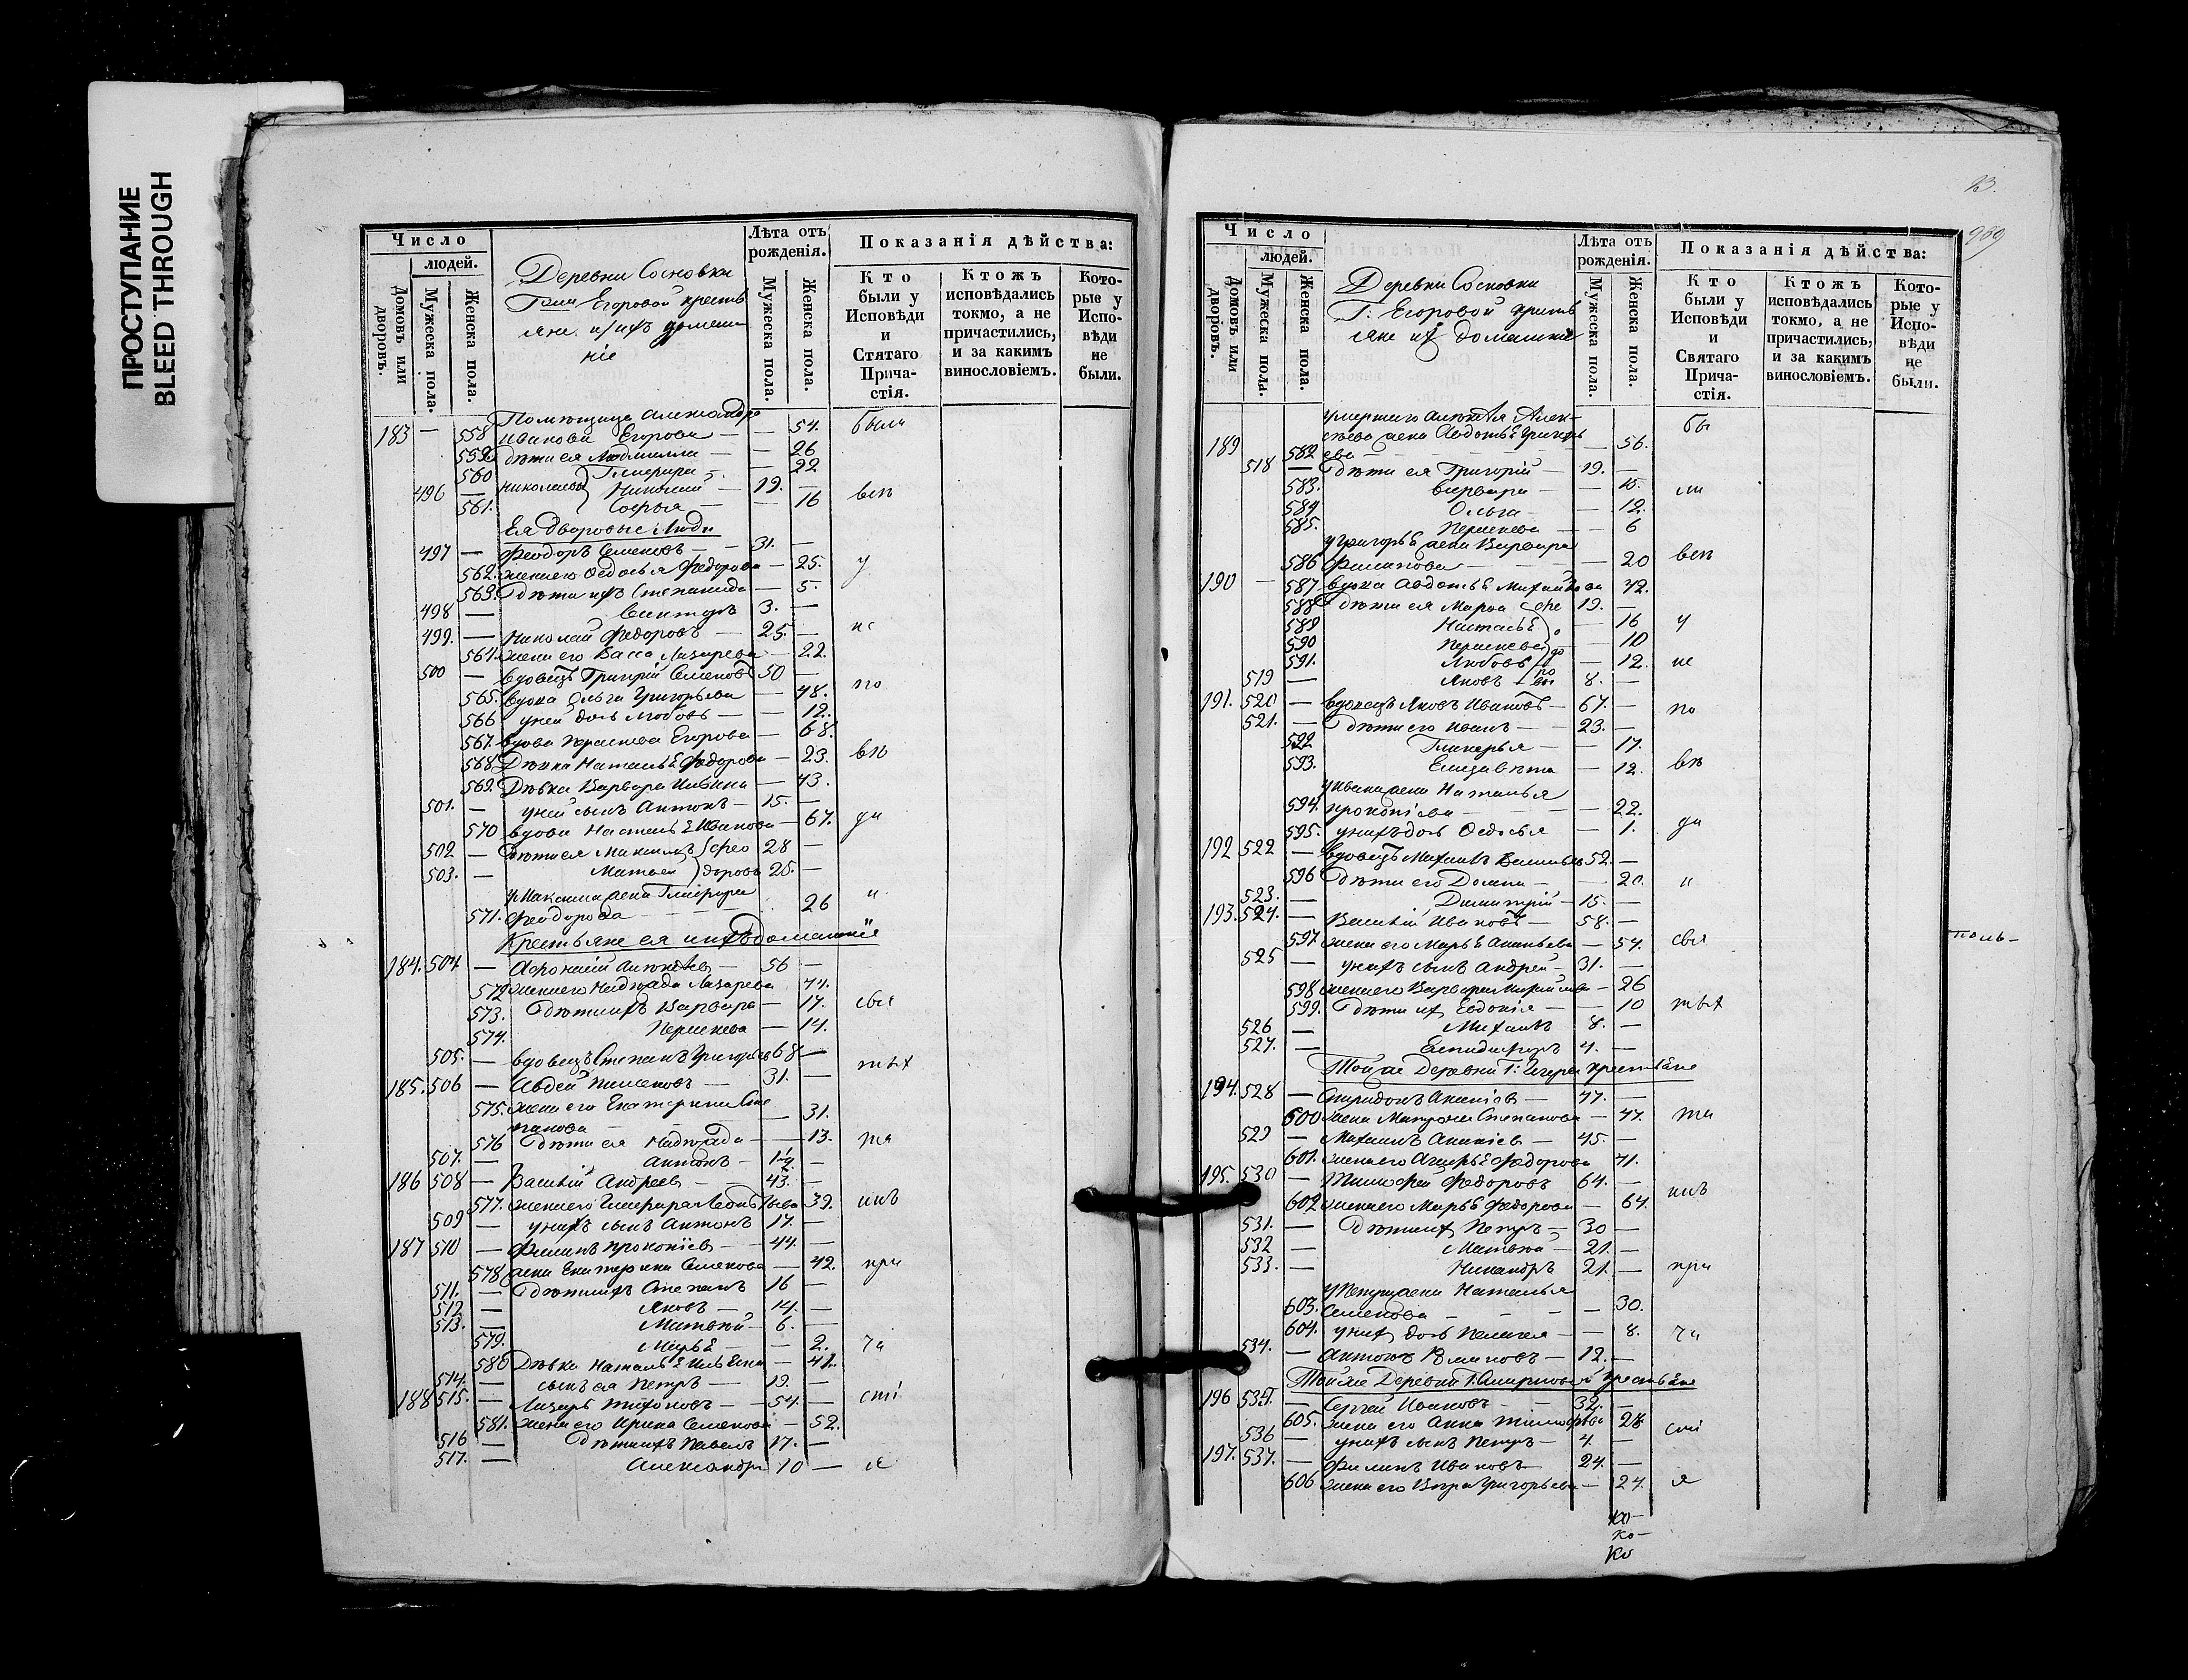 ПРОСТУПАНИЕ
BLEED THROUGH
Число
людей.
Домовъ или дворовъ.
Мужеска пола.
Женска пола.
Деревни Сосновки
Г-жи Егоровой кресть
яне и ихъ домаш
ніе
Лѣта отъ рожденія.
Мужеска пола.
Женска пола.
Показанія дѣйства:
Кто были у Исповѣди и Стятаго Прича-стія.
Ктожъ исповѣдались токмо, а не причастились, и за какимъ винословіемъ.
Кото-рые у Испо-вѣди не были.
Помѣщица Александра
183 — 558 Иванова Егорова — — 54. были
559 дѣти ея Людмилла — — 26
560 Гликерія — 22
496 — Николаевы Николай — 19. —
561. Софья — — 16 всѣ
Ея Дворовые Люди
497 — Феодоръ Семеновъ — 31. —
562. жена его Федосья Федорова — 25. у
563. Дѣти ихъ Степанида — 5.
498 — Викторъ 3. —
499. — Николай Федоровъ — 25. — ис
564. жена его Васса Лазарева — 22.
500 — вдовецъ Григорій Семеновъ 50 —
565. вдова Ольга Григорьева — 48. по
566 у ней дочь Любовь — — 12.
567. вдова Парасковья Егорова — 68.
568. Дѣвка Наталья Федорова — 23. вѣ
569. Дѣвка Варвара — 43.
501. — у ней сынъ Антонъ — 15. —
570 вдова Настасья Иванова — 67. ди
502 — дѣти ея Максимъ Фео 28 —
503. — Матвей дорова 25. —
у Максима жена Гликерія
571. Феодорова — 26 и
Крестьяне ея и ихъ домашніе
184. 504 — Афонасій Алексѣевъ — 56 —
572 жена его Надежда Лазарева 44.
573. Дѣти ихъ Варвара — 17. свя
574. — 14.
505. — вдовецъ Степанъ Григорьевъ 68 —
185. 506 — Авдей — 31. — тых
575. жена его Екатерина Сте
панова — — 31.
576 Дѣти ея Надежда — — 13. та
507. — Антонъ — —
186 508 — Василій Андреевъ — 43. —
577. жена его 39. инъ
509 — у нихъ сынъ Антонъ 17. —
187 510 — Филипъ Прокопіевъ — 44. —
578 жена Екатерина Семенова — 42. при
511. — Дѣти ихъ Степанъ 16 —
512 — Яковъ — 14. —
513. — Матвѣй — 6. —
579. Марья — — 2. ча
580 Дѣвка Наталья — 41.
514. — сынъ ея Петръ — 19. —
188 515. — Лазарь Тихоновъ — 54. — сті
581. жена его Ирина Семенова — 52.
516 — Дѣти ихъ Павелъ 17. —
517. — Александръ 10 — я
23.
969
Число
людей.
Домовъ или дворовъ.
Мужеска пола.
Женска пола.
Деревни Сосновки
Г: Егоровой кресть
яне и ихъ домашніе
Лѣта отъ рожденія.
Мужеска пола.
Женска пола.
Показанія дѣйства:
Кто были у Исповѣди и Святаго Прича-стія.
Ктожъ исповѣдались токмо, а не причастились, и за какимъ винословіемъ.
Кото-рые у Испо-вѣди не были.
умершаго Алексѣя Алек-
189 сѣева жена Авдотья Григорь бы
582 ева — — 56.
518 — Дѣти ея Григорій — 19. —
583. Варвара — — 15. ли
584 Ольга — — 12.
585. — — 6
у Григорья жена Варвара
586 Филипова — — 20 всѣ
190 — 587. вдова Авдотья Михайлова 42.
588 дѣти ея Марфа Фе 19. —
589 Настасья о — 16 у
590 до — 10
591. Любовь — 12. ис
519 — Яковъ 8. —
191. 520 — вдовецъ Яковъ Ивановъ — 67. — по
521. — Дѣти его Иванъ — 23. —
592 Гликерья — — 17.
593. Елизавета — 12. вѣ
у Ивана жена Наталья
594. Прокопіева — — 22.
595. у нихъ дочь Федосья — 1. ди
192 522 — вдовецъ Михаилъ Васильевъ 52. —
596 Дѣти его Домна — — 20. и
523. — Димитрій — 15. —
193. 524. — Василій Ивановъ — 58. —
597. жена его Марья Ананьева — 54. свя
525 — у нихъ сынъ Андрей — 31. —
598 жена его Варвара Михайлова — 26
599. Дѣти их Евдокія — — 10 тых
526 — Михаилъ 8. —
527. — Елпидифоръ 4. —
Той же Деревни Г: крестьяне
194. 528 — Спиридонъ Ананіевъ — 47. —
600 жена Матрона Степанова — 47. та
529 — Михаилъ Ананіевъ — 45. —
601. жена его Федорова 41.
195. 530 — Тимофей Федоровъ 64. —
602 жена его Марья Федорова — 64. инъ
531. — Дѣти их Петръ — 30 —
532 — Матвѣй — 21. —
533. — Никандръ 21. — при
у Петра жена Наталья
603. Семенова — — — 30.
604. у них дочь Пелагея — — 8. ча
534. — Антонъ — 12. —
Той же Деревни Г: Смирновой крестьяне
196 535 — Сергей Ивановъ — 32. —
605. жена его Анна Тимофеева 28 сті
536 — у нихъ сынъ Петръ — 4. —
197. 537. — Филипъ Ивановъ — 24. —
606 жена его Вѣра Григорьева — 24. я
толь-
ко-
ко-
ко